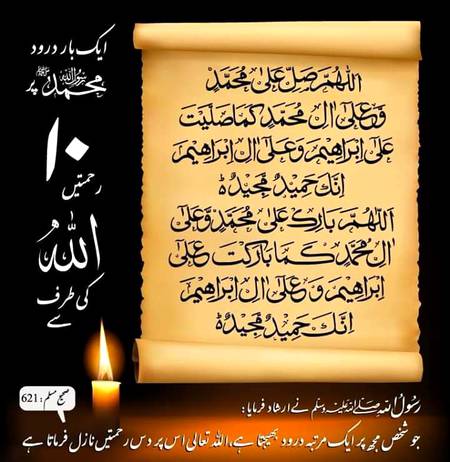 ایک بار درود
محمد رسول اللہ ﷺ پر
۱۰
رحمتیں
اللہ
کی طرف
سے
اللّٰهُمَّ صَلِّ عَلٰى مُحَمَّدٍ
وَّعَلٰى اٰلِ مُحَمَّدٍ كَمَا صَلَّيْتَ
عَلٰى اِبْرَاهِيْمَ وَعَلٰى اٰلِ اِبْرَاهِيْمَ
اِنَّكَ حَمِيْدٌ مَّجِيْدٌ ۃ
اَللّٰهُمَّ بَارِكْ عَلٰى مُحَمَّدٍ وَّعَلٰى
اٰلِ مُحَمَّدٍ كَمَا بَارَكْتَ عَلٰى
اِبْرَاهِيْمَ وَعَلٰى اٰلِ اِبْرَاهِيْمَ
اِنَّكَ حَمِيْدٌ مَّجِيْدٌ ۃ
صحیح مسلم : 621
رسول اللہ صلی اللہ علیہ وسلم نے ارشاد فرمایا :
جو شخص مجھ پر ایک مرتبہ درود بھیجتا ہے، اللہ تعالی اس پر دس رحمتیں نازل فرماتا ہے